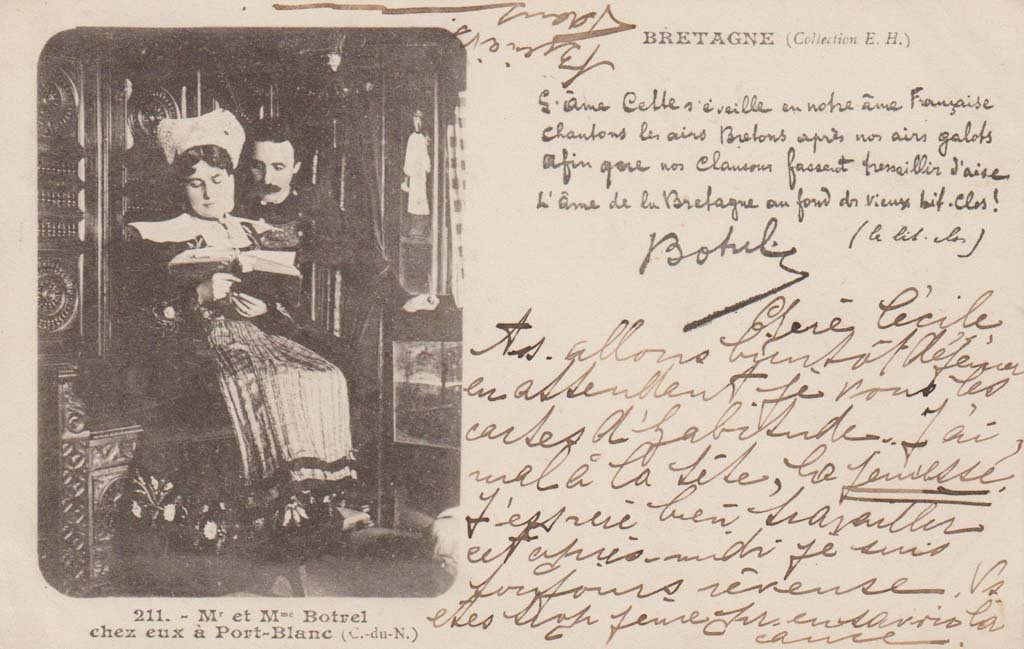 BRETAGNE (Collection E. H.)
L'âme Celte s'éveille en notre âme Française
Chantons les airs Bretons après nos airs galots
Afin que nos Chansons fassent tressaillir d'aise
L'âme de la Bretagne au fond des vieux lit-Clos!
Botrel (le lit-clos)
Chère Cécile
Ns. allons bientôt déjeuner
en attendent je vous les
cartes d'habitude. J'ai
mal à la tête, la
J'espère bien travailler
cet après-midi je suis
toujours rêveuse. Vs
etes trop jeune pr. en savoir la
cause.
211. - Mr et Mme Botrel
chez eux à Port-Blanc (C.-du-N.)